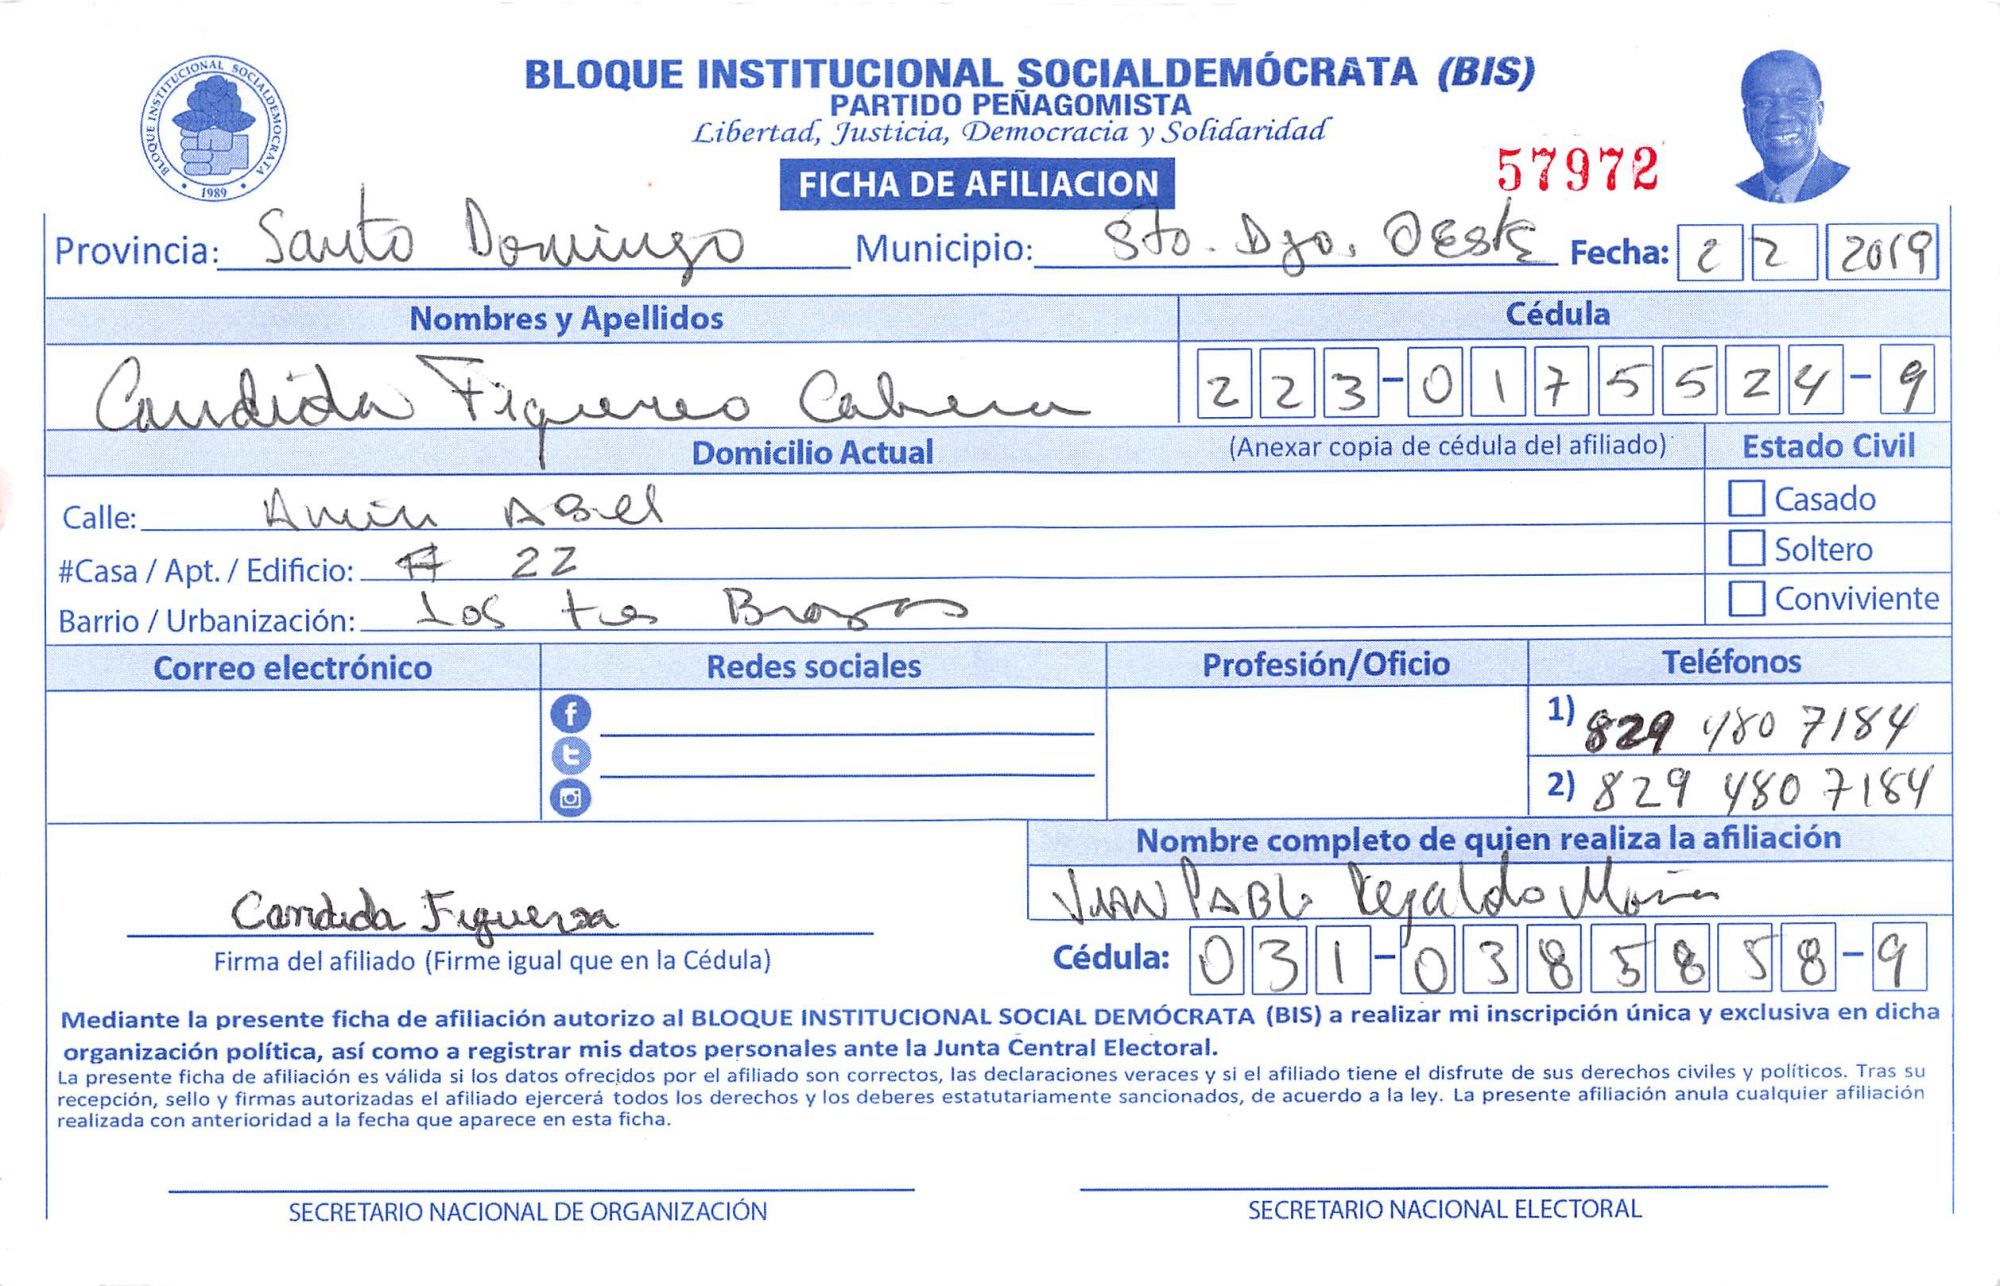 BLOQUE INSTITUCIONAL SOCIALDEMÓCRATA (BIS)
PARTIDO PEÑAGOMISTA
Libertad, Justicia, Democracia y Solidaridad
BLOQUE INSTITUCIONAL SOCIALDEMOCRATA
1989
FICHA DE AFILIACION
57972
Provincia: Santo Domingo Municipio: Sto. Dgo. OESTE Fecha: 2 2 2019
Nombres y Apellidos Cédula
Candida Figuereo Cabrera 223-0175524-9
Domicilio Actual (Anexar copia de cédula del afiliado) Estado Civil
Calle: Amin ABel Casado
#Casa / Apt. / Edificio: # 22 Soltero
Barrio / Urbanización: Los tres Brazos Conviviente
Correo electrónico Redes sociales Profesión/Oficio Teléfonos
1) 829 480 7184
2) 829 480 7184
Nombre completo de quien realiza la afiliación
JUAN PABLO Regalado
Candida Figuereo
Firma del afiliado (Firme igual que en la Cédula) Cédula: 031-0385858-9
Mediante la presente ficha de afiliación autorizo al BLOQUE INSTITUCIONAL SOCIAL DEMÓCRATA (BIS) a realizar mi inscripción única y exclusiva en dicha
organización política, así como a registrar mis datos personales ante la Junta Central Electoral.
La presente ficha de afiliación es válida si los datos ofrecidos por el afiliado son correctos, las declaraciones veraces y si el afiliado tiene el disfrute de sus derechos civiles y políticos. Tras su
recepción, sello y firmas autorizadas el afiliado ejercerá todos los derechos y los deberes estatutariamente sancionados, de acuerdo a la ley. La presente afiliación anula cualquier afiliación
realizada con anterioridad a la fecha que aparece en esta ficha.
SECRETARIO NACIONAL DE ORGANIZACIÓN SECRETARIO NACIONAL ELECTORAL